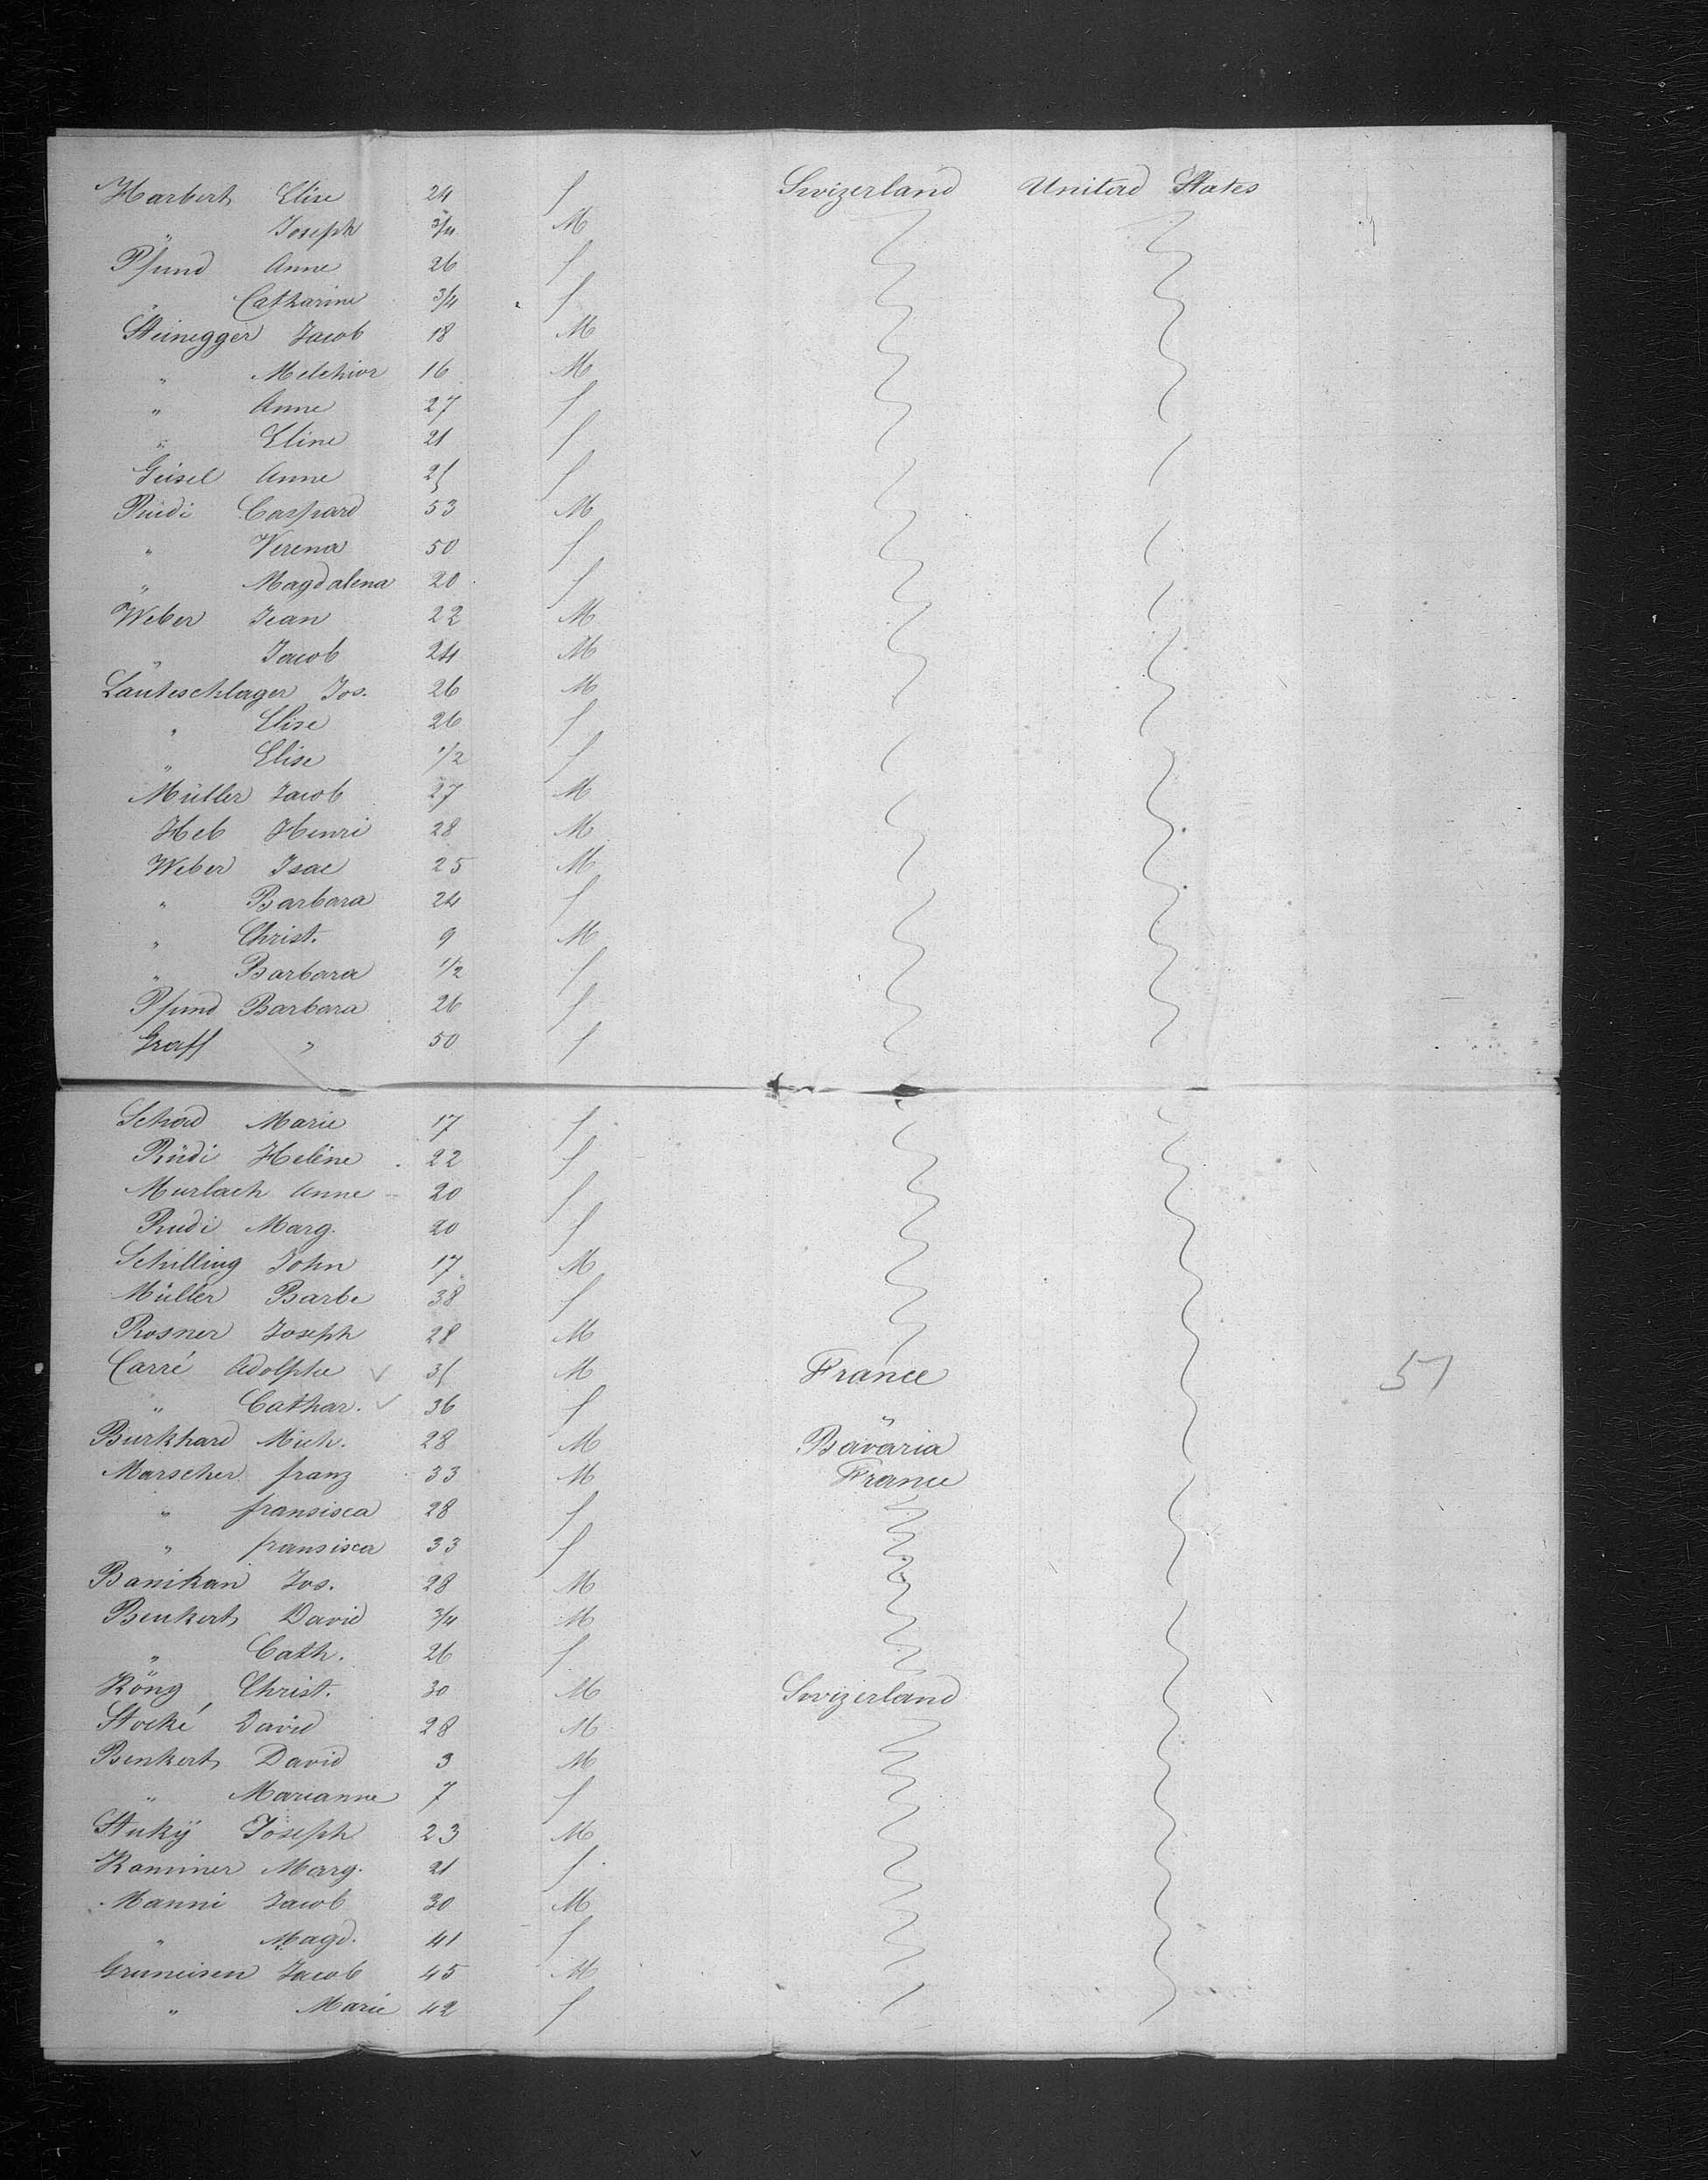 Harbert Elise 24 f Swizerland United States
" Joseph 3/4 M
Pfund Anne 26 f
" Catharine 3/4 f
Steinegger Jacob 18 M
" Melchior 16 M
" Anne 27 f
" Eline 21 f
Geisel Anne 25 f
Rüdi Caspard 53 M
" Verena 50 f
" Magdalena 20 f
Weber Jean 22 M
" Jacob 24 M
Lauteschlager Jos. 26 M
" Elise 26 f
" Elise 1/2 f
Müller Jacob 27 M
Heb Henri 28 M
Weber Isac 25 M
" Barbara 24 f
" Christ. 9 M
" Barbara 1/2 f
Pfund Barbara 26 f
Graff " 50 f
Schad Marie 17 f
Rüdi Heléne 22 f
Murlach Anne 20 f
Rudi Marg. 20 f
Schilling John 17 M
Müller Barbe 38 f
Rosner Joseph 28 M
Carré Adolphe 35 M France 51
" Cathar. 36 f "
Burkhard Mich. 28 M Bavaria
Marscher franz 33 M France
" fransisca 28 f
" fransisca 33 f
Banikan Jos. 28 M
Benkert David 3/4 M
" Cath. 26 f
Köng Christ. 30 M Swizerland
Stocké David 28 M
Benkert David 3 M
" Marianne 7 f
Stukÿ Joseph 23 M
Kaminer Marg. 21 f
Manni Jacob 30 M
" Magd. 41 f
Gruneisen Jacob 45 M
" Marie 42 f